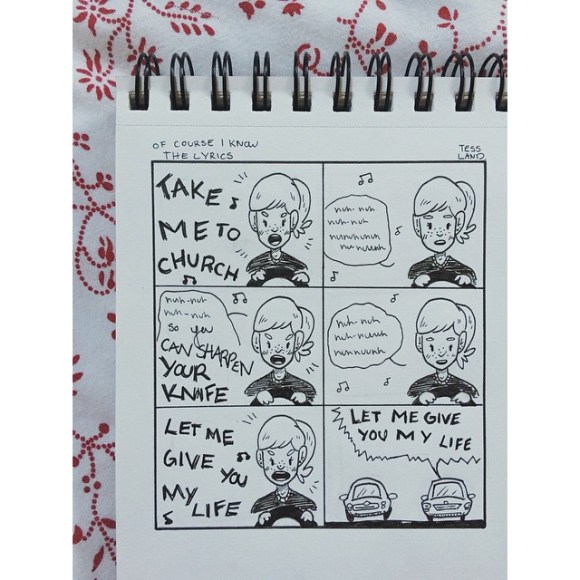 OF COURSE I KNOW
THE LYRICS
TESS
LAND
TAKE
ME TO
CHURCH
nuh-nuh
nuh-nuh
nuhuhuhuh
nu nuuuh
nuh-nuh
nuh-nuh
so you
CAN SHARPEN
YOUR
KNIFE
nuh-nuh
nuh-nuuuh
nunnuuuh
LET ME
GIVE YOU
MY
LIFE
LET ME GIVE
YOU MY LIFE